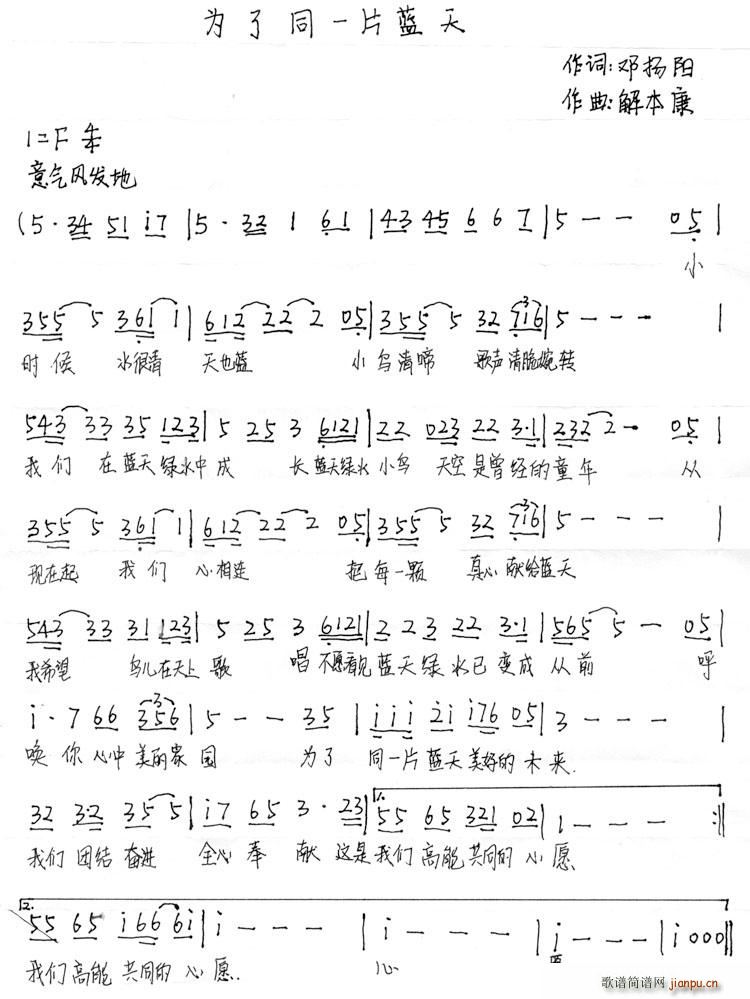 为了同一片蓝天
作词:邓扬阳
作曲:解本康
1=F 4/4
意气风发地
(5·34 51 i7 | 5·32 1 61 | 43 45 6 6 7 | 5 - - 05 |
小
355 5 361 1 | 612 22 2 05 | 355 5 32 716 | 5 - - - |
时候 水很清 天也蓝 小鸟清啼 歌声清脆婉转
543 33 35 123 | 5 25 3 6121 | 22 023 22 3·1 | 232 2 - 05 |
我们 在蓝天绿水中成 长蓝天绿水小鸟 天空是曾经的童年 从
355 5 361 1 | 612 22 2 05 | 355 5 32 716 | 5 - - - |
现在起 我们 心相连 把每一颗 真心献给蓝天
543 33 31 123 | 5 25 3 6121 | 2 23 22 3·1 | 565 5 - 05 |
我希望 鸟儿在天上歌 唱不愿看见蓝天绿水已变成从前 呼
i·7 66 356 | 5 - - 35 | iii 2i i76 05 | 3 - - - |
唤你心中美丽家园 为了 同一片蓝天美好的未来.
32 3·2 35 5 | i7 65 3·23 | 1. 55 65 321 02 | 1 - - - :||
我们团结奋进 全心奉 献 这是我们高能共同的心愿
2. 55 65 i66 6i | i - - - | i - - - | i - - - | i000 ||
我们高能共同的心愿. 心 愿
歌谱简谱网
jianpu.cn